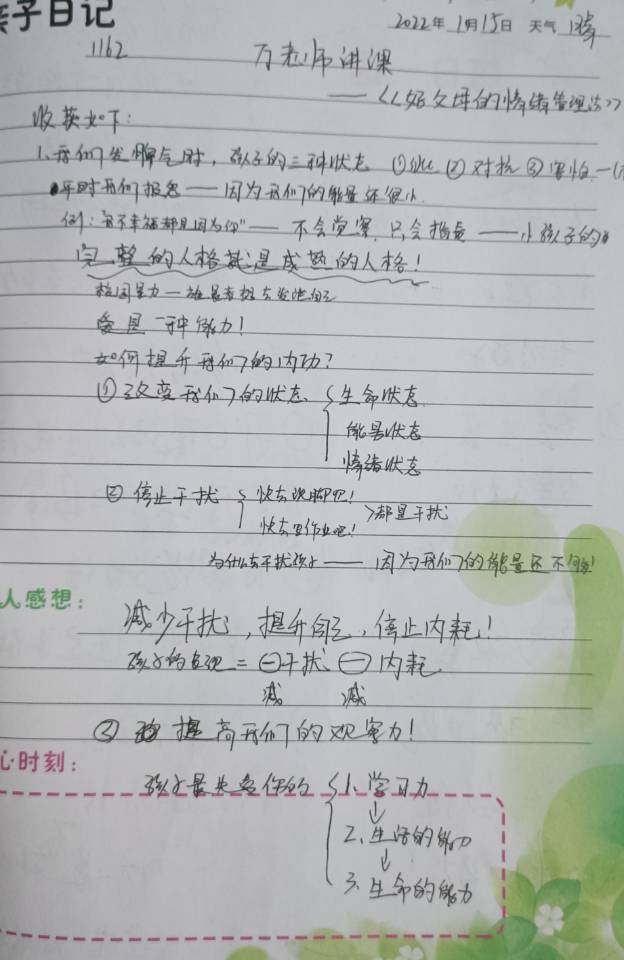 亲子日记
2022年1月15日 天气 晴
1162 万老师讲课
——《好父母的情绪管理法》
收获如下:
1.我们发脾气时,孩子的三种状态 ① ②对抗 ③害怕
平时我们报怨——因为我们的能量还很小
例:“我不幸福都是因为你”——不会觉察,只会指责——小孩子的
完整的人格就是成熟的人格!
校园暴力—
爱是一种能力!
如何提升我们的内功?
①改变我们的状态 { 生命状态
能量状态
情绪状态
②停止干扰 { 快去洗脚吧!
快去写作业吧! >都是干扰
为什么去干扰孩子——因为我们的能量还不够!
人感想:
减少干扰,提升自己,停止内耗!
孩子的表现=㊀干扰㊀内耗
减 减
③ 提高我们的观察力!
心时刻:
孩子最失去你的 { 1.学习力
↓
2.生活的能力
↓
3.生命的能力